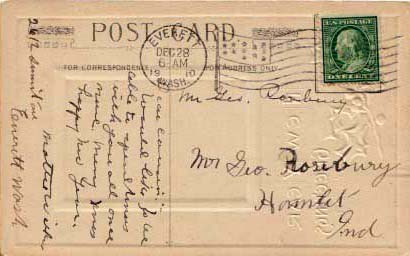 POST CARD
FOR CORRESPONDENCE
FOR ADDRESS ONLY
EVERETT
DEC 28
6 AM
1910
WASH.
U.S. POSTAGE
ONE CENT
Mr Geo. Roxbury
Mr Geo. Rosebury
Hamlet
Ind
Dear Cousin:
Would like to be
able to spend Xmas
with you all once
more. Merry Xmas
Happy New Year.
Everett Wash
2612 Summit Ave